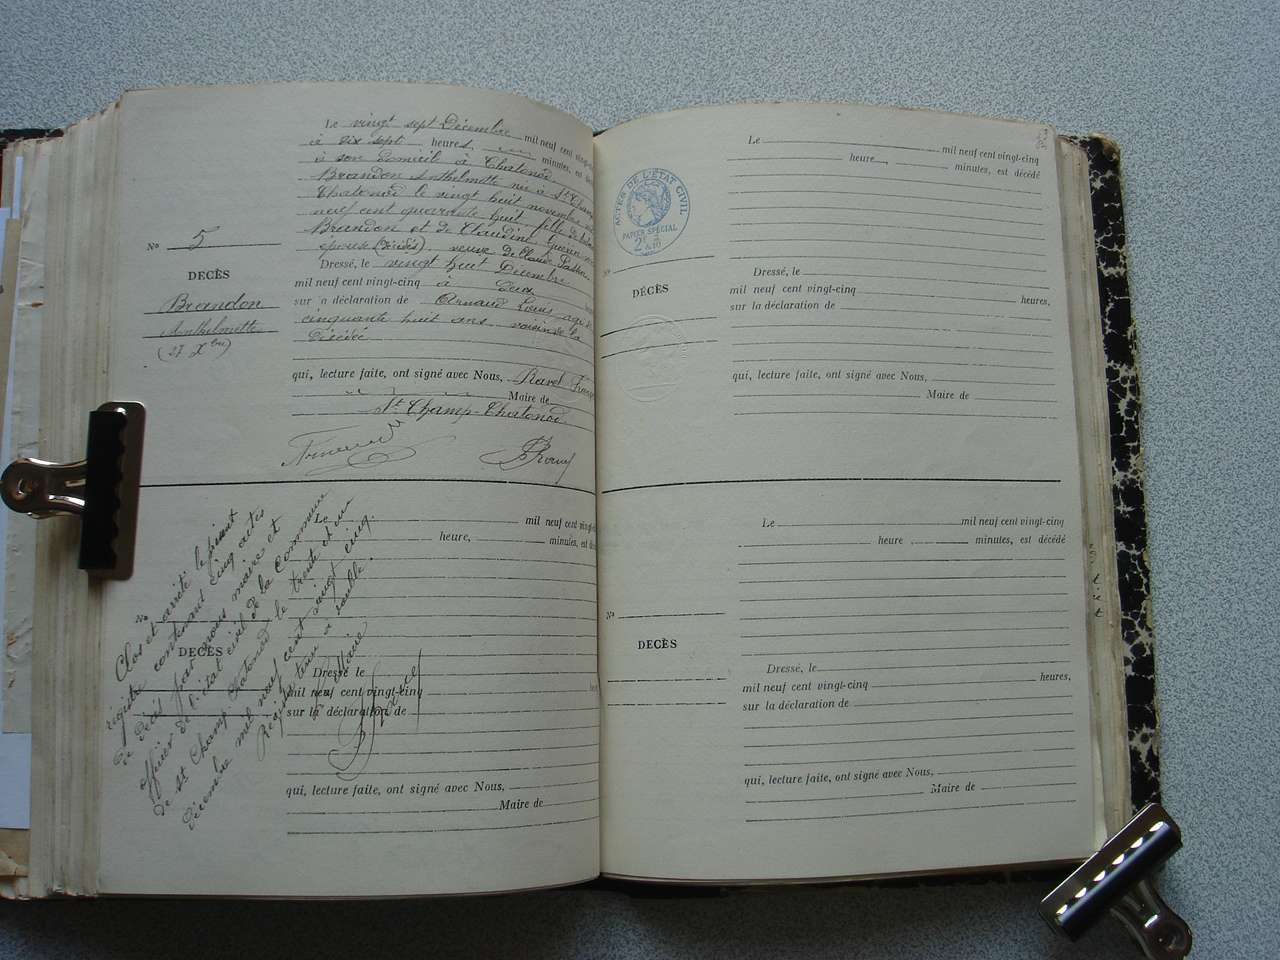 Le vingt sept Décembre mil neuf cent vingt-
à dix sept heures, minutes, est
à son domicil à Chatonod
Brandon Anthelmette née à St Champ
Chatonod le vingt huit novembre
neuf cent quarante huit fille de
Brandon et de Claudine Guerin
épouse (décédés) veuve De Claude
Dressé, le vingt huit Décembre
mil neuf cent vingt-cinq à Deux
sur a déclaration de Arnaud Louis agé de
cinquante huit ans voisin de la
Décédée
qui, lecture faite, ont signé avec Nous, Ravel
Maire de
St Champ-Chatonod
No 5
DECÈS
Brandon
Anthelmette
(27 Xbre)
Clos et arrêté le présent
registre contenant cinq actes
de Décès par nous maire et
officier de l'état civil de la commune
de St Champ Chatonod le trente et un
décembre mil neuf cent vingt cinq.
Registre tenu à double.
Le Maire
Le mil neuf cent vingt-
heure, minutes, est
No
DECÈS
Dressé le
mil neuf cent vingt-cinq
sur la déclaration de
qui, lecture faite, ont signé avec Nous,
Maire de
Le mil neuf cent vingt-cinq
heure, minutes, est décédé
ACTES DE L'ÉTAT CIVIL
PAPIER SPÉCIAL
No
DÉCÈS
Dressé, le
mil neuf cent vingt-cinq heures,
sur la déclaration de
qui, lecture faite, ont signé avec Nous,
Maire de
Le mil neuf cent vingt-cinq
heure minutes, est décédé
No
DECÈS
Dressé, le
mil neuf cent vingt-cinq heures,
sur la déclaration de
qui, lecture faite, ont signé avec Nous,
Maire de